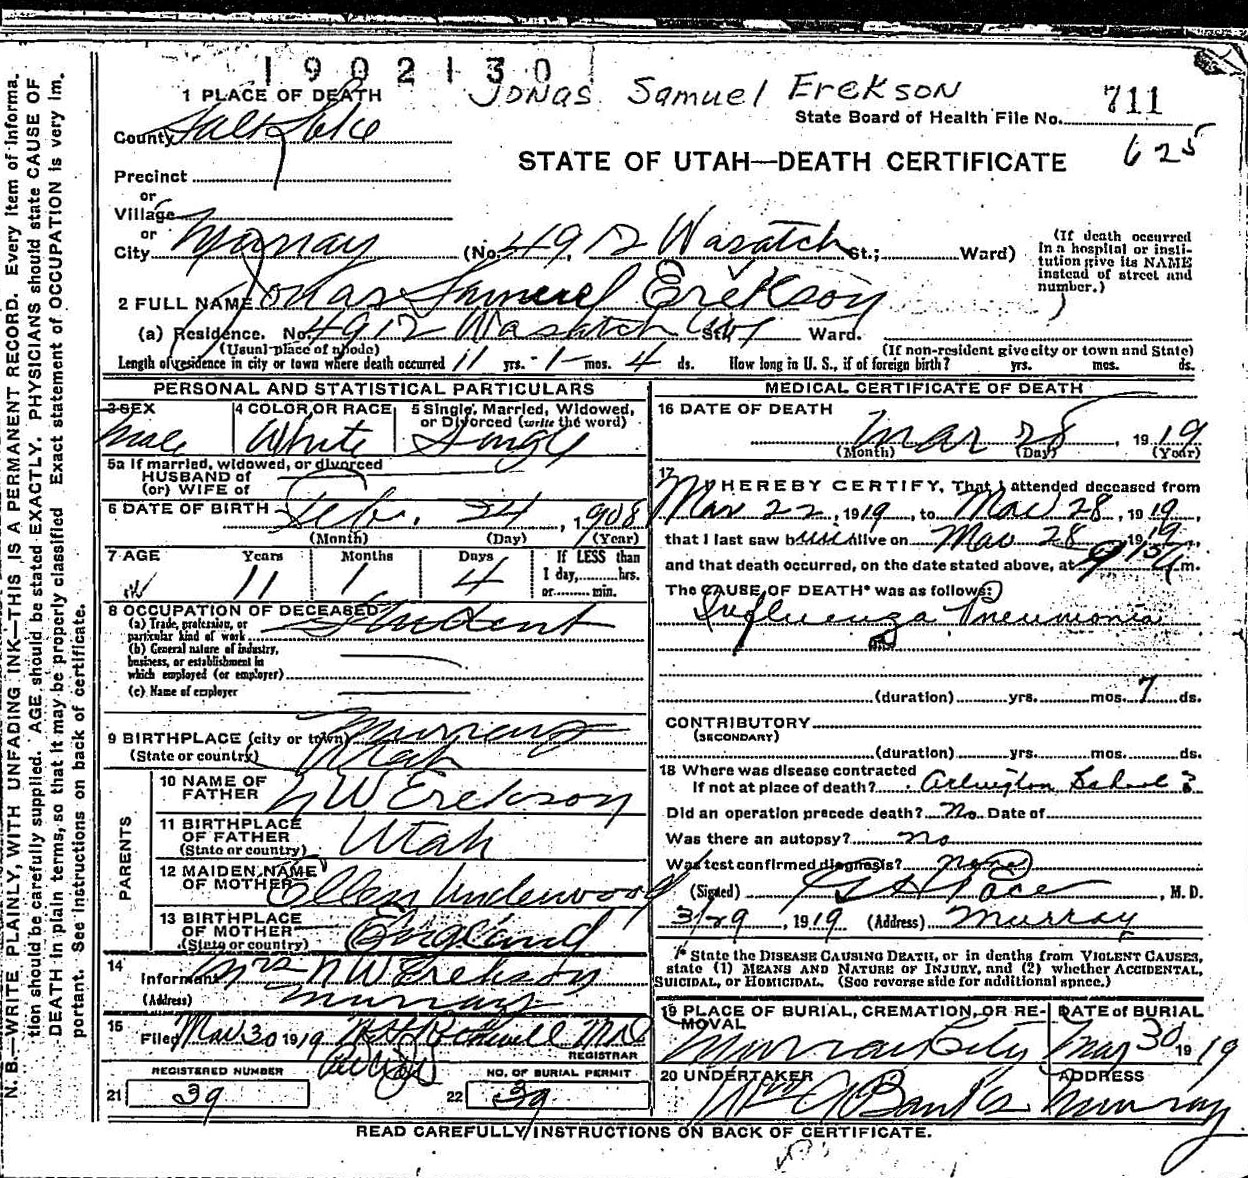 1902130
Jonas Samuel Erekson
711
State Board of Health File No.
625
STATE OF UTAH—DEATH CERTIFICATE
1 PLACE OF DEATH
County Salt Lake
Precinct
or
Village
or
City Murray (No. 4912 Wasatch St.; Ward)
(If death occurred in a hospital or institution give its NAME instead of street and number.)
2 FULL NAME Jonas Samuel Erekson
(a) Residence. No. 4912 Wasatch St., Ward.
(Usual place of abode) (If non-resident give city or town and State)
Length of residence in city or town where death occurred 11 yrs. 1 mos. 4 ds. How long in U. S., if of foreign birth? yrs. mos. ds.
PERSONAL AND STATISTICAL PARTICULARS
3 SEX
Male
4 COLOR OR RACE
White
5 Single, Married, Widowed, or Divorced (write the word)
Single
5a If married, widowed, or divorced
HUSBAND of
(or) WIFE of
6 DATE OF BIRTH Feb. 24, 1908
(Month) (Day) (Year)
7 AGE Years Months Days If LESS than
11 1 4 1 day, hrs.
or min.
8 OCCUPATION OF DECEASED
(a) Trade, profession, or particular kind of work Student
(b) General nature of industry, business, or establishment in which employed (or employer)
(c) Name of employer
9 BIRTHPLACE (city or town) Murray
(State or country) Utah
PARENTS
10 NAME OF FATHER N W Erekson
11 BIRTHPLACE OF FATHER (State or country) Utah
12 MAIDEN NAME OF MOTHER Ellen Underwood
13 BIRTHPLACE OF MOTHER (State or country) England
14 Informant Mrs N W Erekson
(Address) Murray
15 Filed Mar 30 1919 Rothwell MD
REGISTRAR
REGISTERED NUMBER
21 39
NO. OF BURIAL PERMIT
22 39
MEDICAL CERTIFICATE OF DEATH
16 DATE OF DEATH
Mar 28, 1919
(Month) (Day) (Year)
17 I HEREBY CERTIFY, That I attended deceased from
Mar 22, 1919, to Mar 28, 1919,
that I last saw him alive on Mar 28, 1919,
and that death occurred, on the date stated above, at m.
The CAUSE OF DEATH* was as follows:
Influenza Pneumonia
(duration) yrs. mos. 7 ds.
CONTRIBUTORY
(SECONDARY)
(duration) yrs. mos. ds.
18 Where was disease contracted
If not at place of death? Arlington School?
Did an operation precede death? No. Date of
Was there an autopsy? no
Was test confirmed diagnosis? none
(Signed) G H Pace, M. D.
3/29, 1919 (Address) Murray
* State the DISEASE CAUSING DEATH, or in deaths from VIOLENT CAUSES, state (1) MEANS AND NATURE OF INJURY, and (2) whether ACCIDENTAL, SUICIDAL, or HOMICIDAL. (See reverse side for additional space.)
19 PLACE OF BURIAL, CREMATION, OR REMOVAL
Murray City
DATE of BURIAL
Mar 30 1919
20 UNDERTAKER
Banks
ADDRESS
Murray
READ CAREFULLY INSTRUCTIONS ON BACK OF CERTIFICATE.
N. B.—WRITE PLAINLY, WITH UNFADING INK—THIS IS A PERMANENT RECORD. Every item of information should be carefully supplied. AGE should be stated EXACTLY. PHYSICIANS should state CAUSE OF DEATH in plain terms, so that it may be properly classified. Exact statement of OCCUPATION is very important. See instructions on back of certificate.